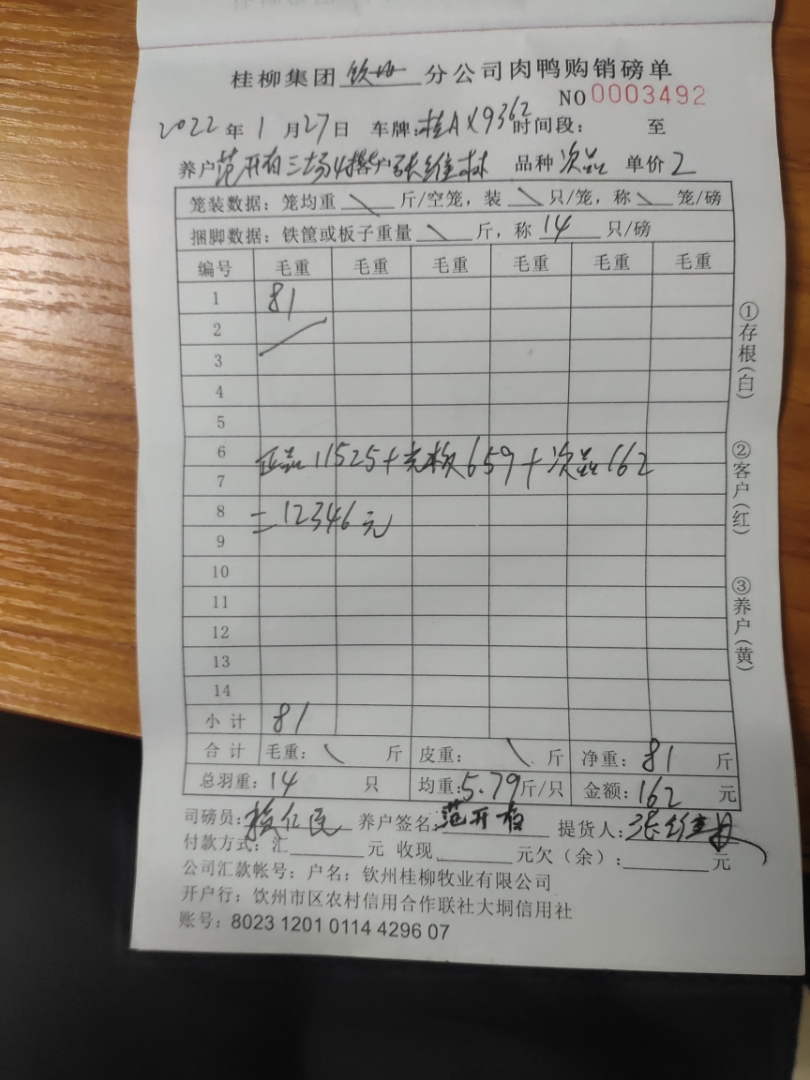 桂柳集团 钦州 分公司肉鸭购销磅单
NO 0003492
2022 年 1 月 27 日 车牌:桂AX9362 时间段: 至
养户 范开 三场4 张维林 品种 次品 单价 2
笼装数据:笼均重 \ 斤/空笼,装 \ 只/笼,称 \ 笼/磅
捆脚数据:铁筐或板子重量 \ 斤,称 14 只/磅
编号 毛重 毛重 毛重 毛重 毛重 毛重
1 81
2
3
4
5
6
7
正品11525+ 659+次品162
8
=12346元
9
10
11
12
13
14
小计 81
合计 毛重: \ 斤 皮重: \ 斤 净重: 81 斤
总羽重: 14 只 均重: 5.79 斤/只 金额: 162 元
司磅员: 仁民 养户签名: 范开 提货人: 张维
付款方式:汇 元 收现 元欠(余): 元
公司汇款帐号:户名:钦州桂柳牧业有限公司
开户行:钦州市区农村信用合作联社大垌信用社
账号:8023 1201 0114 4296 07
①存根(白)
②客户(红)
③养户(黄)